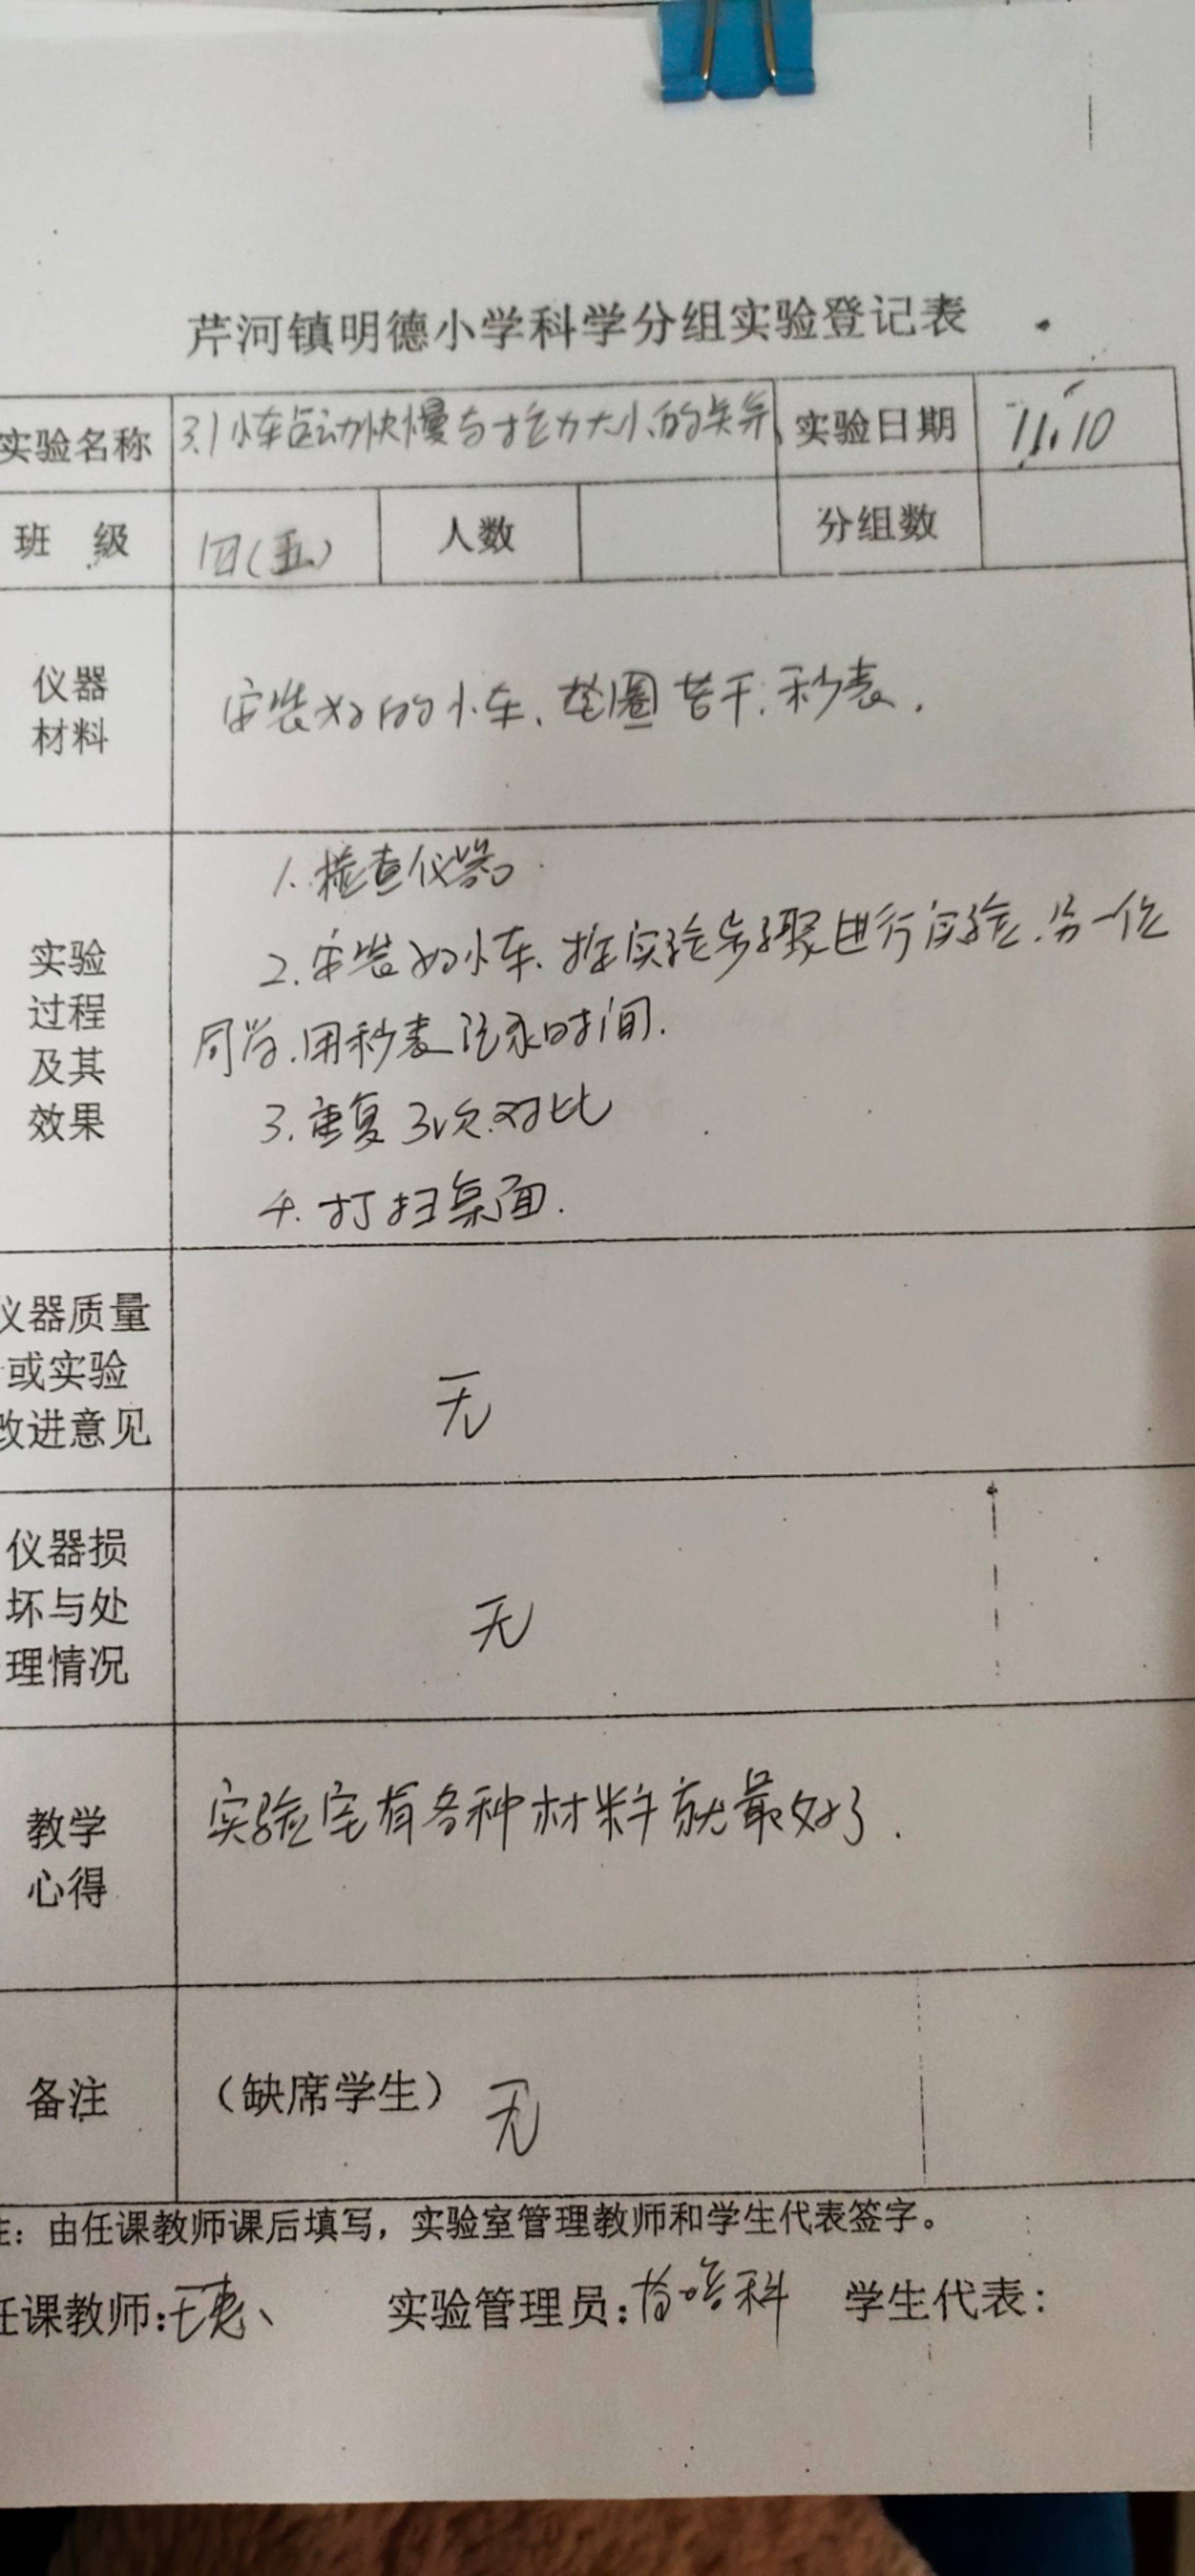 芹河镇明德小学科学分组实验登记表
实验名称 3.1小车运动快慢与拉力大小的关系 实验日期 11.10
班 级 四(五) 人数 分组数
仪器
材料
安装好的小车、垫圈若干、秒表.
实验
过程
及其
效果
1.检查仪器
2.安装好小车、按实验步骤进行实验.另一位
同学.用秒表记录时间.
3.重复3次.对比
4.打扫桌面.
仪器质量
或实验
改进意见
无
仪器损
坏与处
理情况
无
教学
心得
实验室有各种材料就最好了.
备注
(缺席学生) 无
注：由任课教师课后填写，实验室管理教师和学生代表签字。
任课教师: 实验管理员: 学生代表：